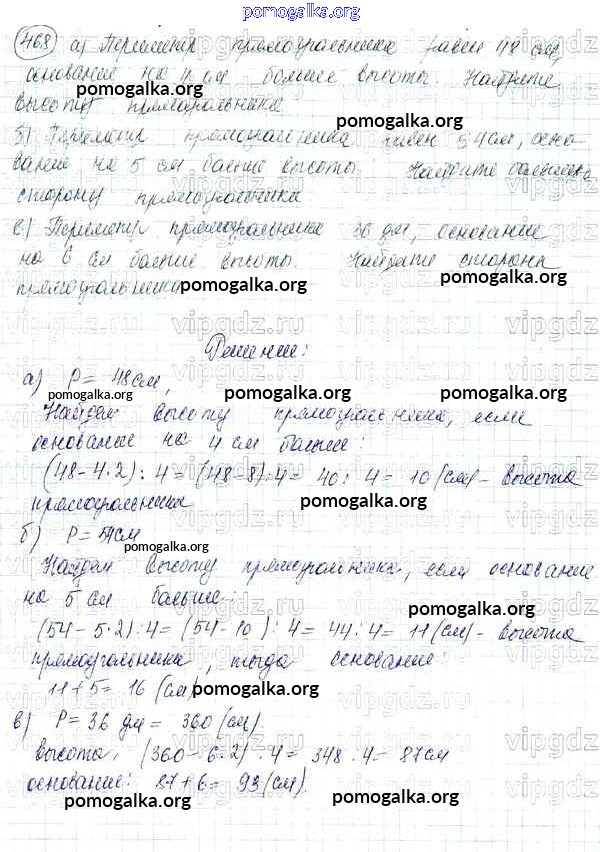 pomogalka.org
468 а) Периметр прямоугольника равен 48 см,
основание на 4 см больше высоты. Найдите
высоту прямоугольника
pomogalka.org
б) Периметр прямоугольника равен 54 см, осно-
вание на 5 см больше высоты. Найдите большую
сторону прямоугольника
pomogalka.org
в) Периметр прямоугольника 36 дм, основание
на 6 см больше высоты. Найдите стороны
прямоугольника
pomogalka.org pomogalka.org
Решение:
а) P = 48 см,
pomogalka.org pomogalka.org
Найдем высоту прямоугольника, если
pomogalka.org
основание на 4 см больше:
(48-4·2):4=(48-8):4= 40:4= 10 (см) - высота
прямоугольника
pomogalka.org
б) P = 54 см
pomogalka.org
Найдем высоту прямоугольника, если основание
на 5 см больше:
pomogalka.org
(54-5·2):4=(54-10):4=44:4=11(см) - высота
прямоугольника, тогда основание:
11+5= 16 (см)
pomogalka.org
в) P = 36 дм = 360 (см).
высота: (360-6·2):4=348:4=87см
основание: 87+6=93(см).
pomogalka.org pomogalka.org
vipgdz.ru